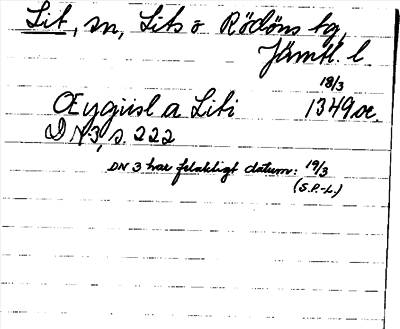 Lit, sn, Lits o Rödöns tg,
Jämtl. l.
18/3
Œygiisl a Liti 1349 or.
DN 3, s. 222
DN 3 har felaktigt datum: 19/3
(S.P.-L.)